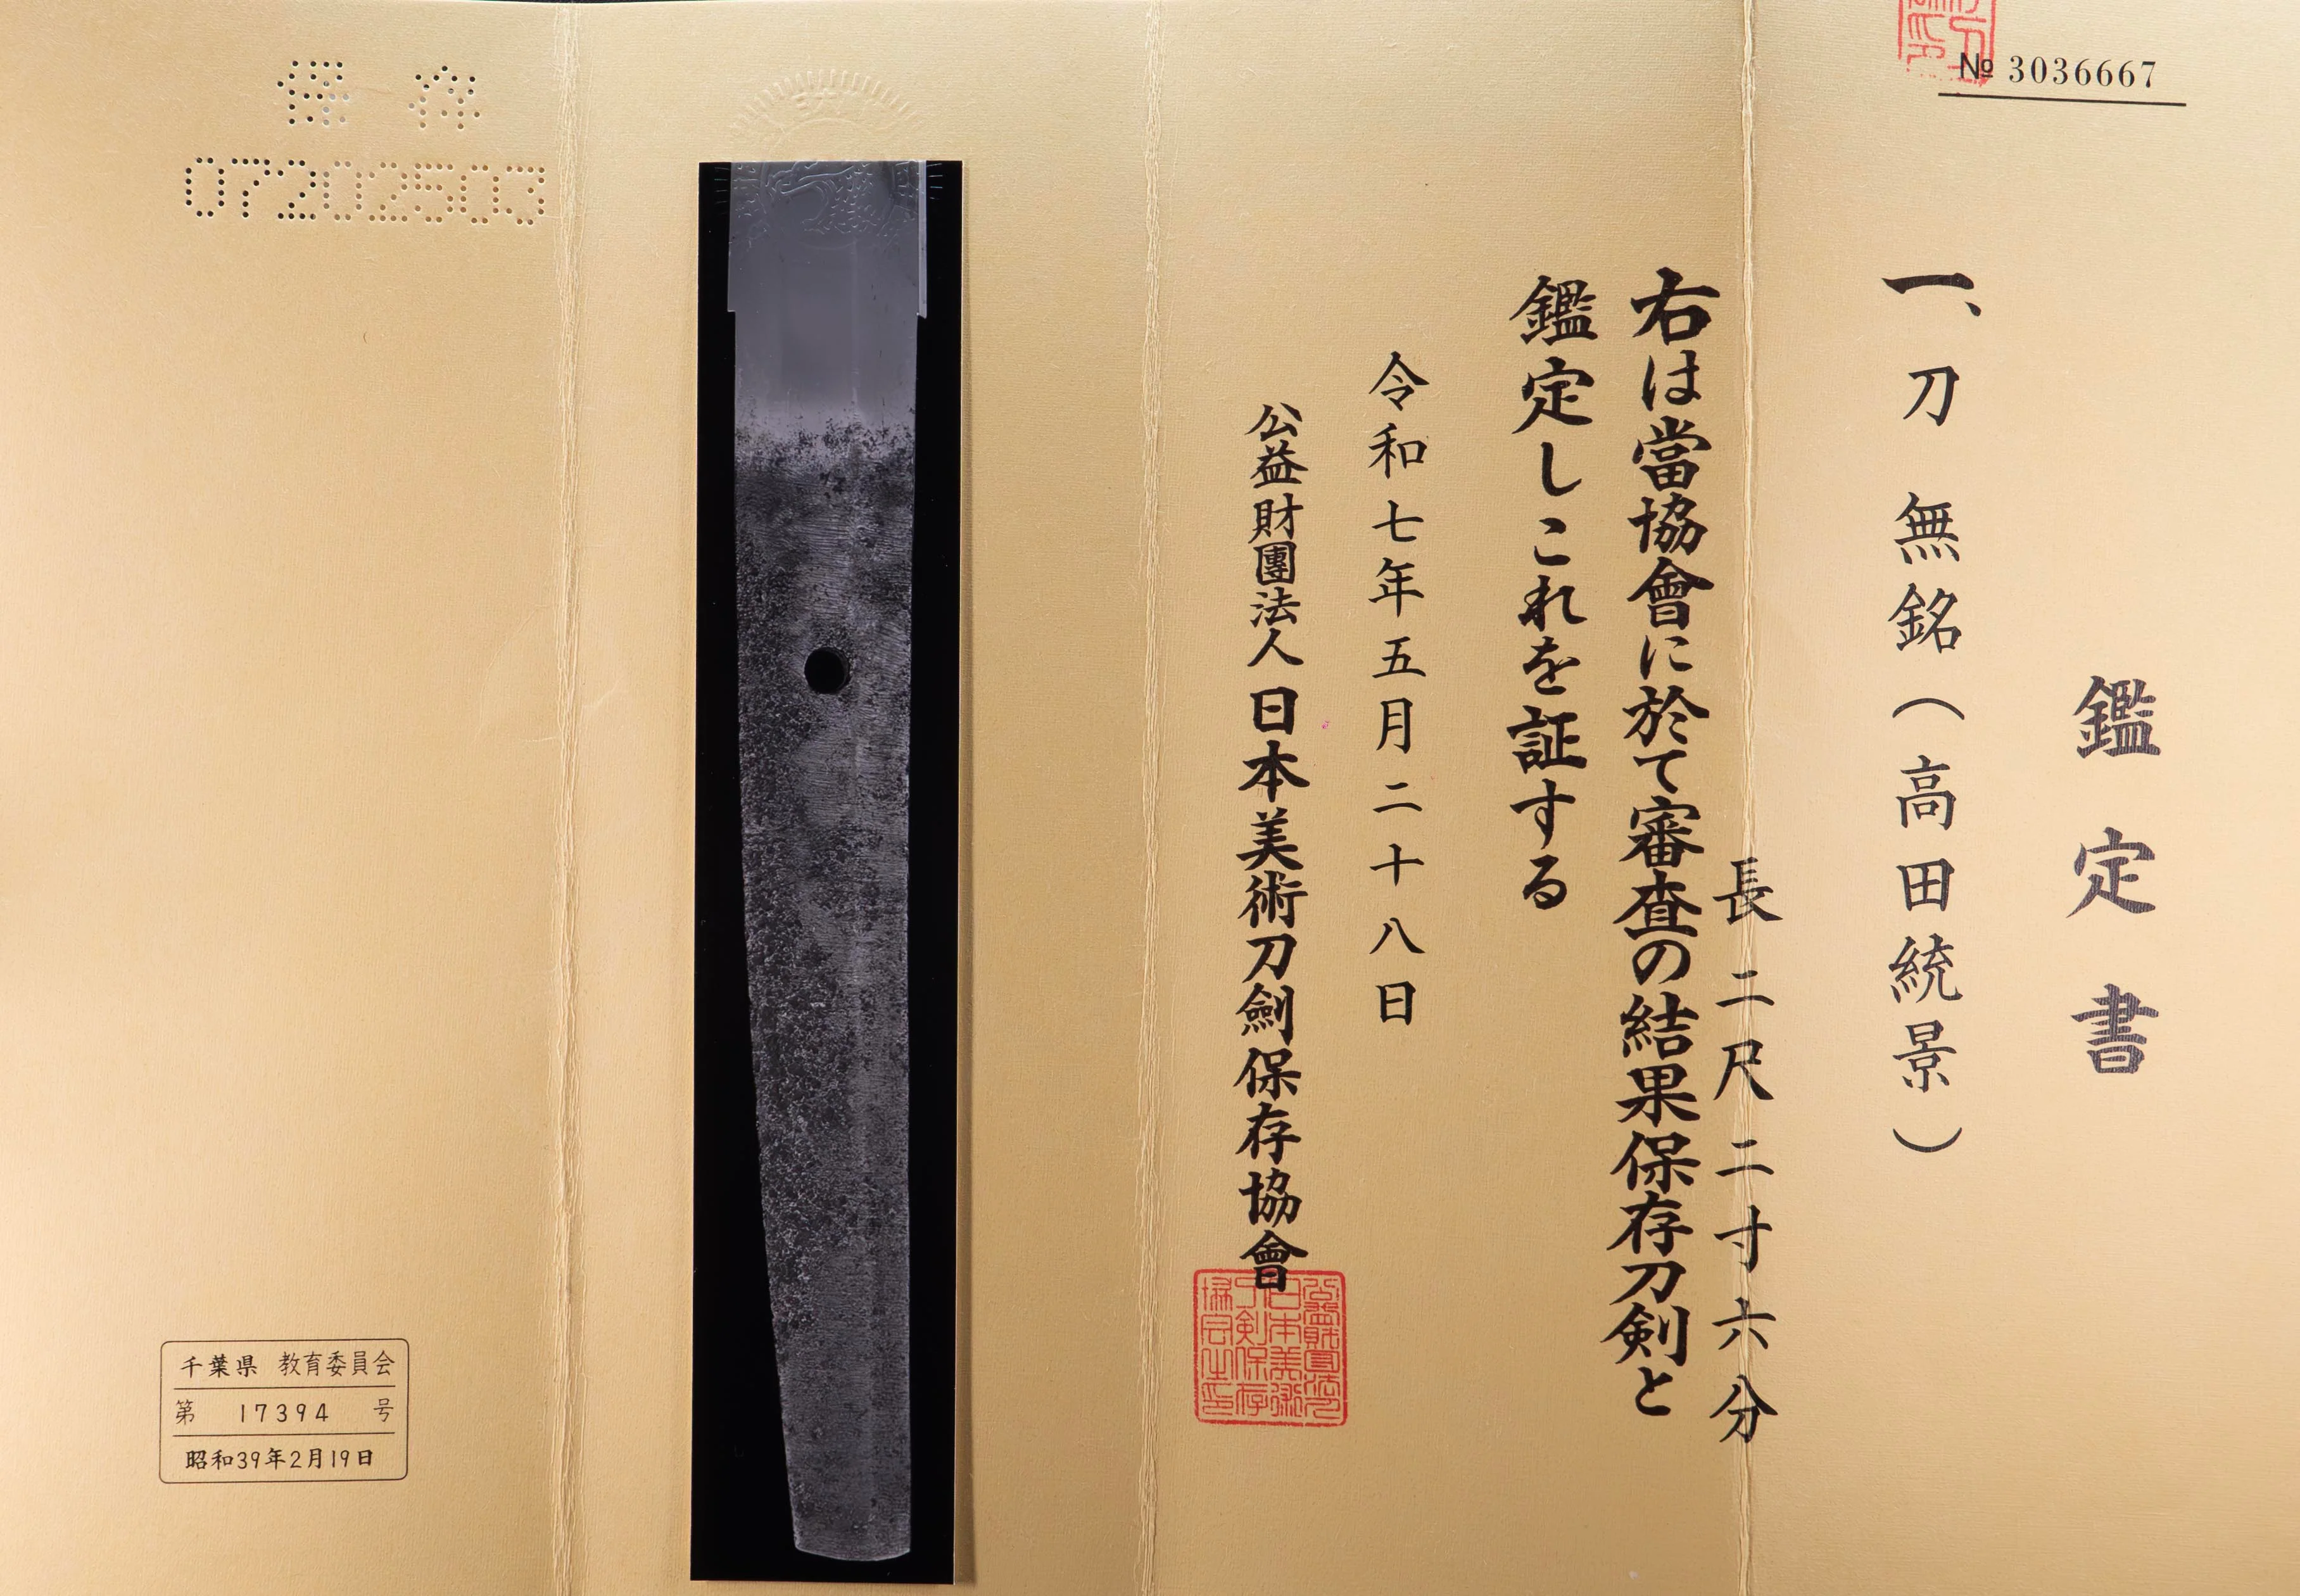 № 3036667
鑑定書
一、刀 無銘(高田統景)
長 二尺二寸六分
右は當協會に於て審査の結果保存刀剣と
鑑定しこれを証する
令和七年五月二十八日
公益財團法人日本美術刀劍保存協會
保存
07202503
千葉県 教育委員会
第 17394 号
昭和39年2月19日